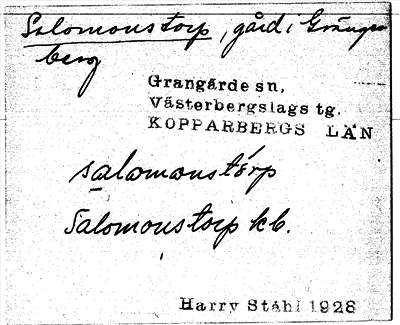 Salomonstorp, gård i Gränges
berg
Grangärde sn,
Västerbergslags tg.
KOPPARBERGS LÄN
salomonstórp
Salomonstorp kb.
Harry Ståhl 1928